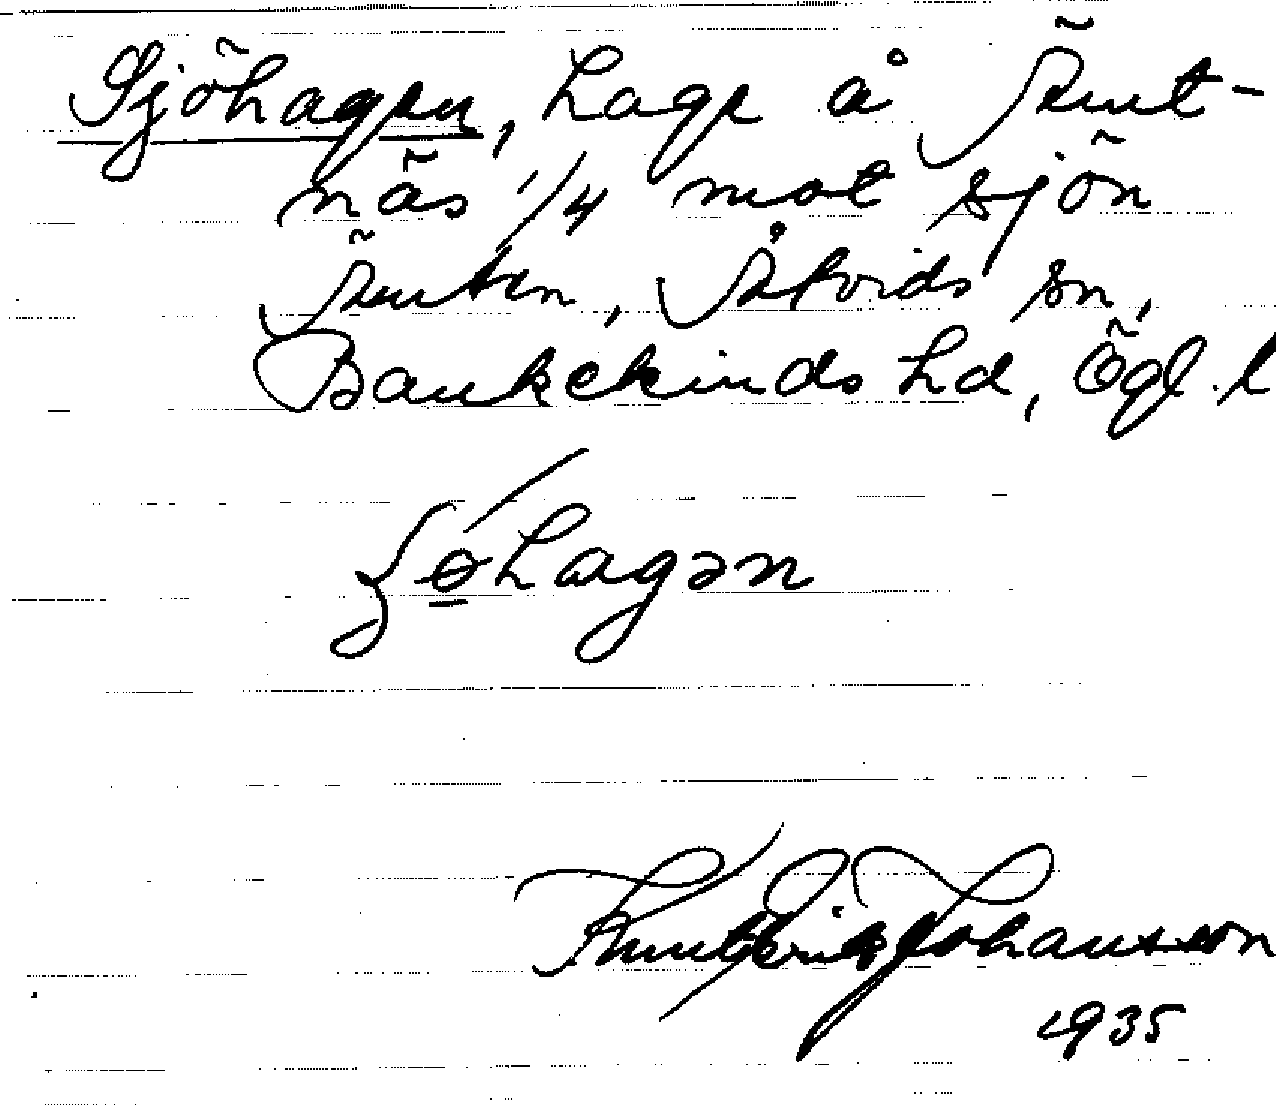 Sjöhagen, hage å Änt-
näs 1/4 mot sjön
Änten, Åtvids sn,
Bankekinds hd, Ögl. l
ʃǿ̱hagən
Knut Erik Johansson
1935